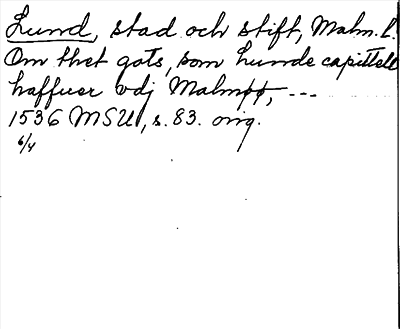 Lund, stad och stift, Malm. L.
Om thet gots, som Lunde capittell
haffuer vdj Malmøø, ---
1536 MSU, s. 83. orig.
6/4